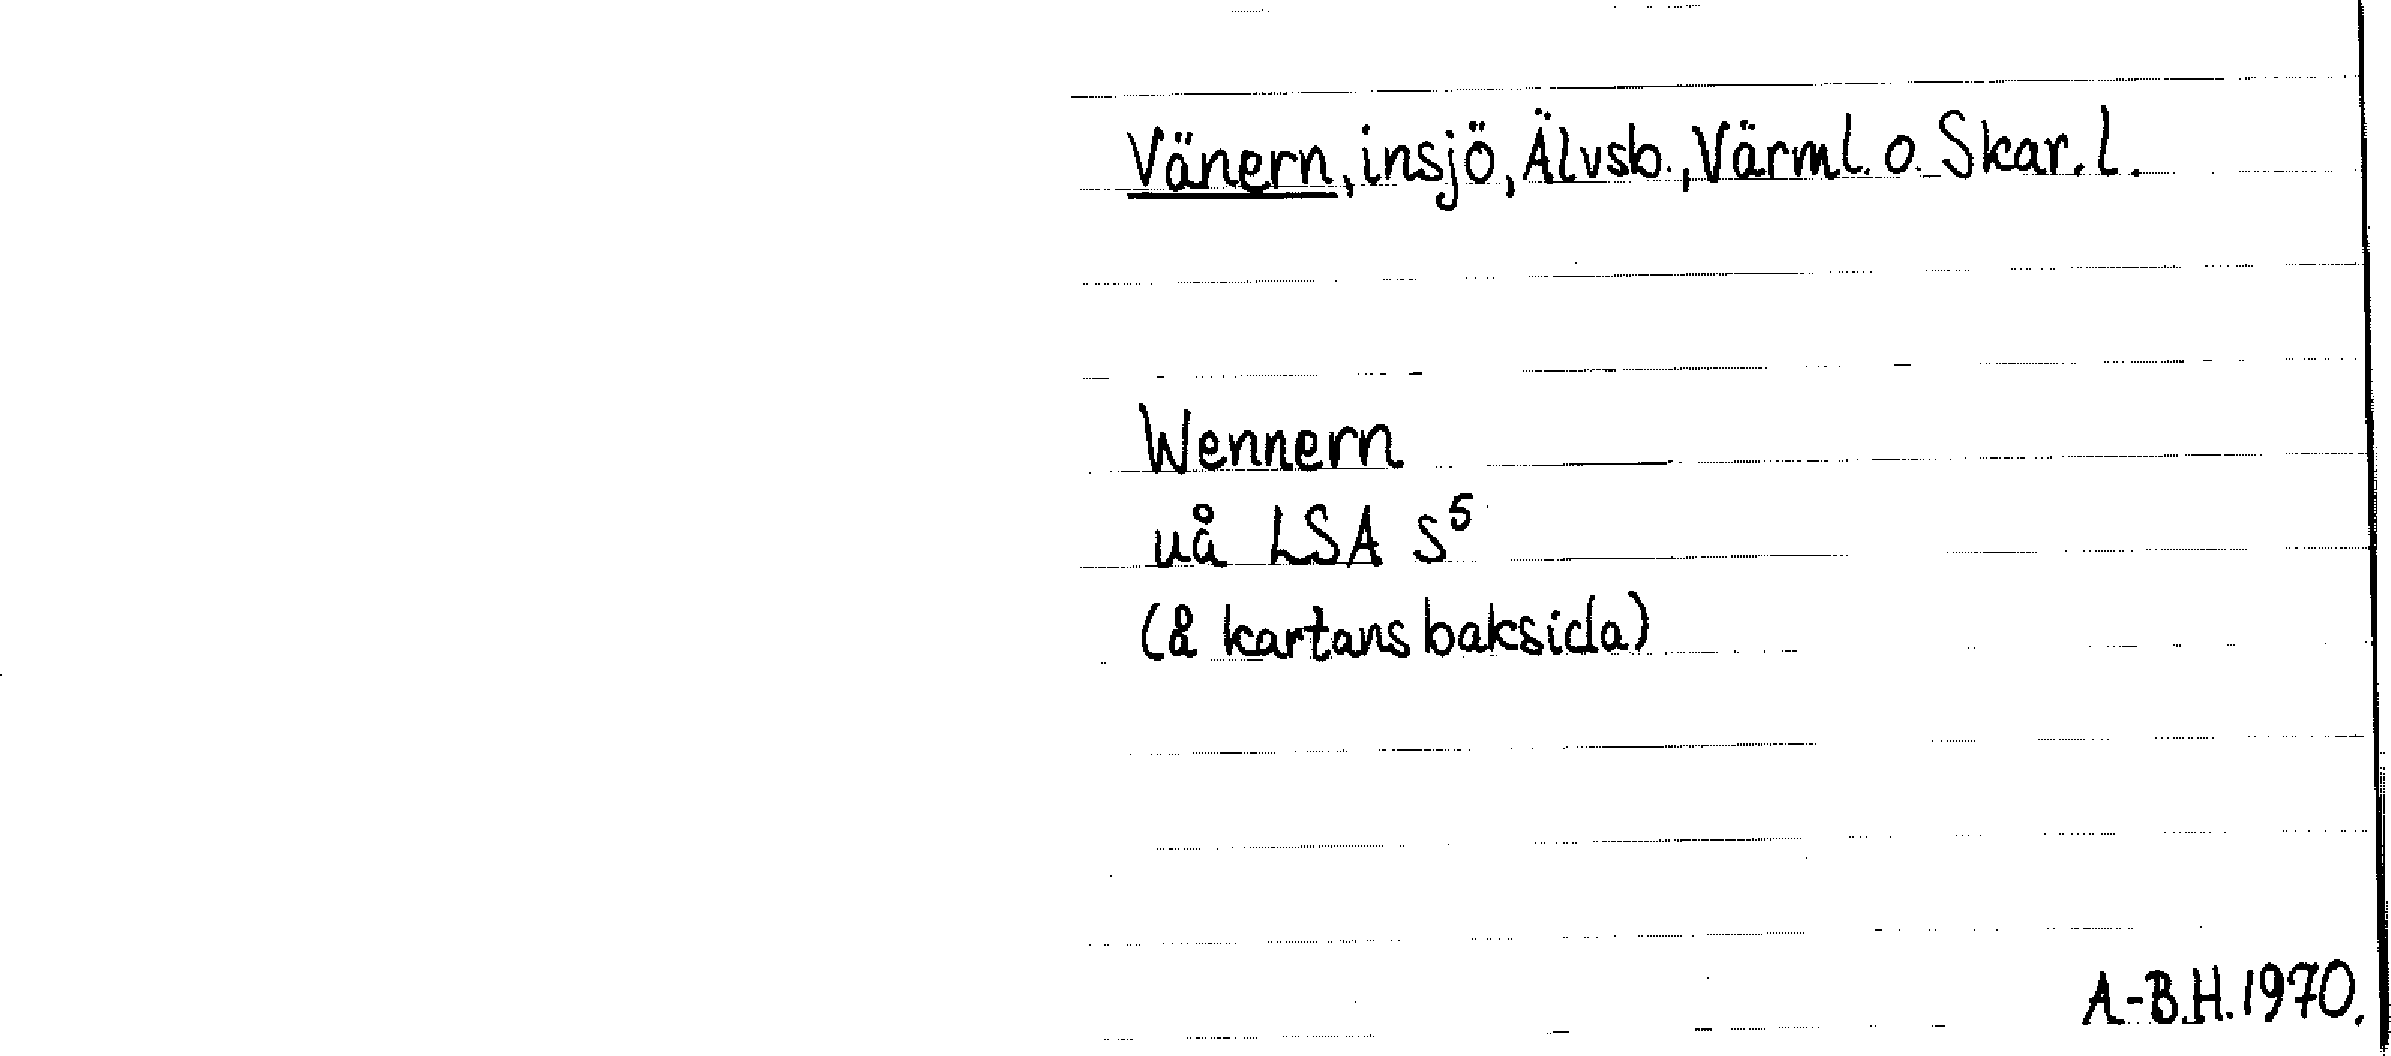 Vänern, insjö, Älvsb., Värml. o. Skar. l.
Wennern
uå LSA S⁵
(å kartans baksida)
A.-B.H. 1970.